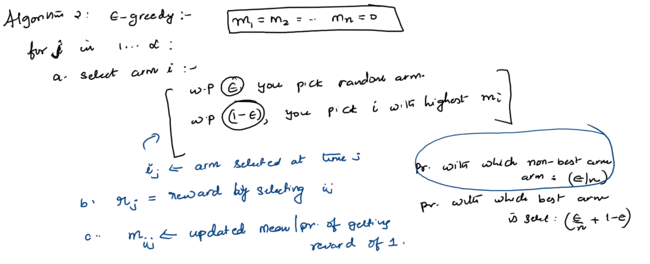 Algorithm 2: ε-greedy :-
m₁ = m₂ = .. mₙ = 0
for j in 1... ∝ :
a. select arm i :-
w.p ε, you pick random arm.
w.p (1-ε), you pick i with highest mᵢ
i_j ← arm selected at time j
b. r_j = reward by selecting i_j
c.. m_{i_j} ← updated mean / pr. of getting
reward of 1.
pr. with which non-best arm
arm : (ε/n)
pr. with which best arm
is selec : (ε/n + 1-ε)